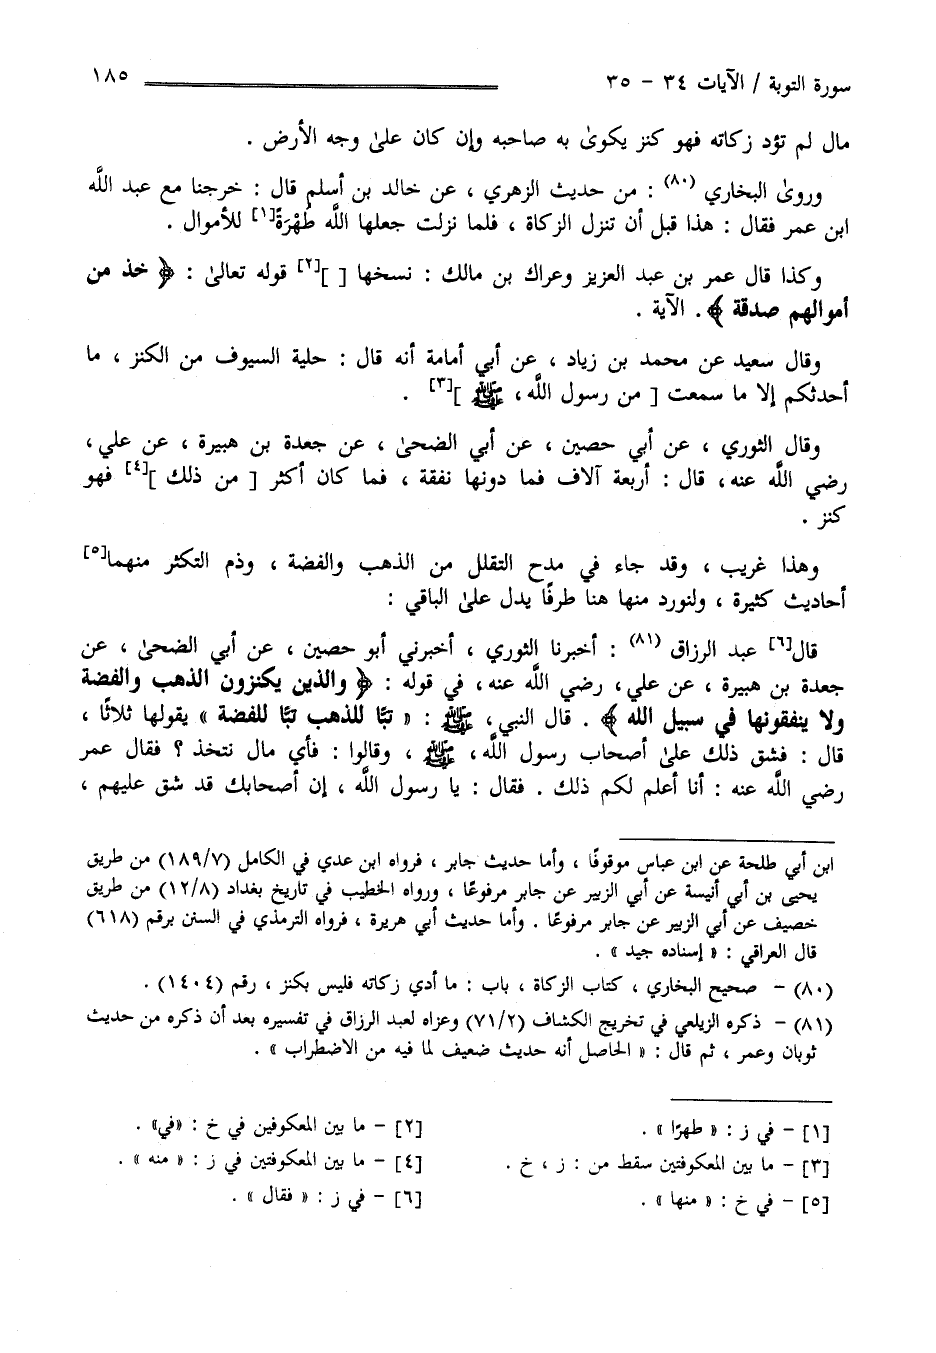 سورة التوبة / الآيات ٣٤ - ٣٥ ١٨٥
مال لم تؤد زكاته فهو كنز يكوىٰ به صاحبه وإن كان علىٰ وجه الأرض .
وروىٰ البخاري (٨٠) : من حديث الزهري ، عن خالد بن أسلم قال : خرجنا مع عبد اللَّه
ابن عمر فقال : هذا قبل أن تنزل الزكاة ، فلما نزلت جعلها اللَّه طُهْرَةً[١] للأموال .
وكذا قال عمر بن عبد العزيز وعراك بن مالك : نسخها [ ][٢] قوله تعالىٰ : ﴿ خذ من
أموالهم صدقة ﴾ . الآية .
وقال سعيد عن محمد بن زياد ، عن أبي أمامة أنه قال : حلية السيوف من الكنز ، ما
أحدثكم إلا ما سمعت [ من رسول اللَّه، ﷺ ][٣] .
وقال الثوري ، عن أبي حصين ، عن أبي الضحىٰ ، عن جعدة بن هبيرة ، عن علي،
رضي اللَّه عنه، قال : أربعة آلاف فما دونها نفقة ، فما كان أكثر [ من ذلك ][٤] فهو
كنز .
وهذا غريب ، وقد جاء في مدح التقلل من الذهب والفضة ، وذم التكثر منهما[٥]
أحاديث كثيرة ، ولنورد منها هنا طرفًا يدل علىٰ الباقي :
قال[٦] عبد الرزاق (٨١) : أخبرنا الثوري ، أخبرني أبو حصين ، عن أبي الضحىٰ ، عن
جعدة بن هبيرة ، عن علي، رضي اللَّه عنه، في قوله : ﴿ والذين يكنزون الذهب والفضة
ولا ينفقونها في سبيل الله ﴾ . قال النبي، ﷺ : « تبًّا للذهب تبًّا للفضة » يقولها ثلاثًا ،
قال : فشق ذلك علىٰ أصحاب رسول اللَّه، ﷺ ، وقالوا : فأي مال نتخذ ؟ فقال عمر
رضي اللَّه عنه : أنا أعلم لكم ذلك . فقال : يا رسول اللَّه ، إن أصحابك قد شق عليهم ،
ابن أبي طلحة عن ابن عباس موقوفًا ، وأما حديث جابر ، فرواه ابن عدي في الكامل (١٨٩/٧) من طريق
يحيى بن أبي أنيسة عن أبي الزبير عن جابر مرفوعًا ، ورواه الخطيب في تاريخ بغداد (١٢/٨) من طريق
خصيف عن أبي الزبير عن جابر مرفوعًا . وأما حديث أبي هريرة ، فرواه الترمذي في السنن برقم (٦١٨)
قال العراقي : « إسناده جيد » .
(٨٠) - صحيح البخاري ، كتاب الزكاة ، باب : ما أدي زكاته فليس بكنز ، رقم (١٤٠٤) .
(٨١) - ذكره الزيلعي في تخريج الكشاف (٧١/٢) وعزاه لعبد الرزاق في تفسيره بعد أن ذكره من حديث
ثوبان وعمر ، ثم قال : « الحاصل أنه حديث ضعيف لما فيه من الاضطراب » .
[١] - في ز : « طهرًا » . [٢] - ما بين المعكوفين في خ : «في» .
[٣] - ما بين المعكوفتين سقط من : ز ، خ . [٤] - ما بين المعكوفتين في ز : « منه » .
[٥] - في خ : « منها » . [٦] - في ز : « فقال » .